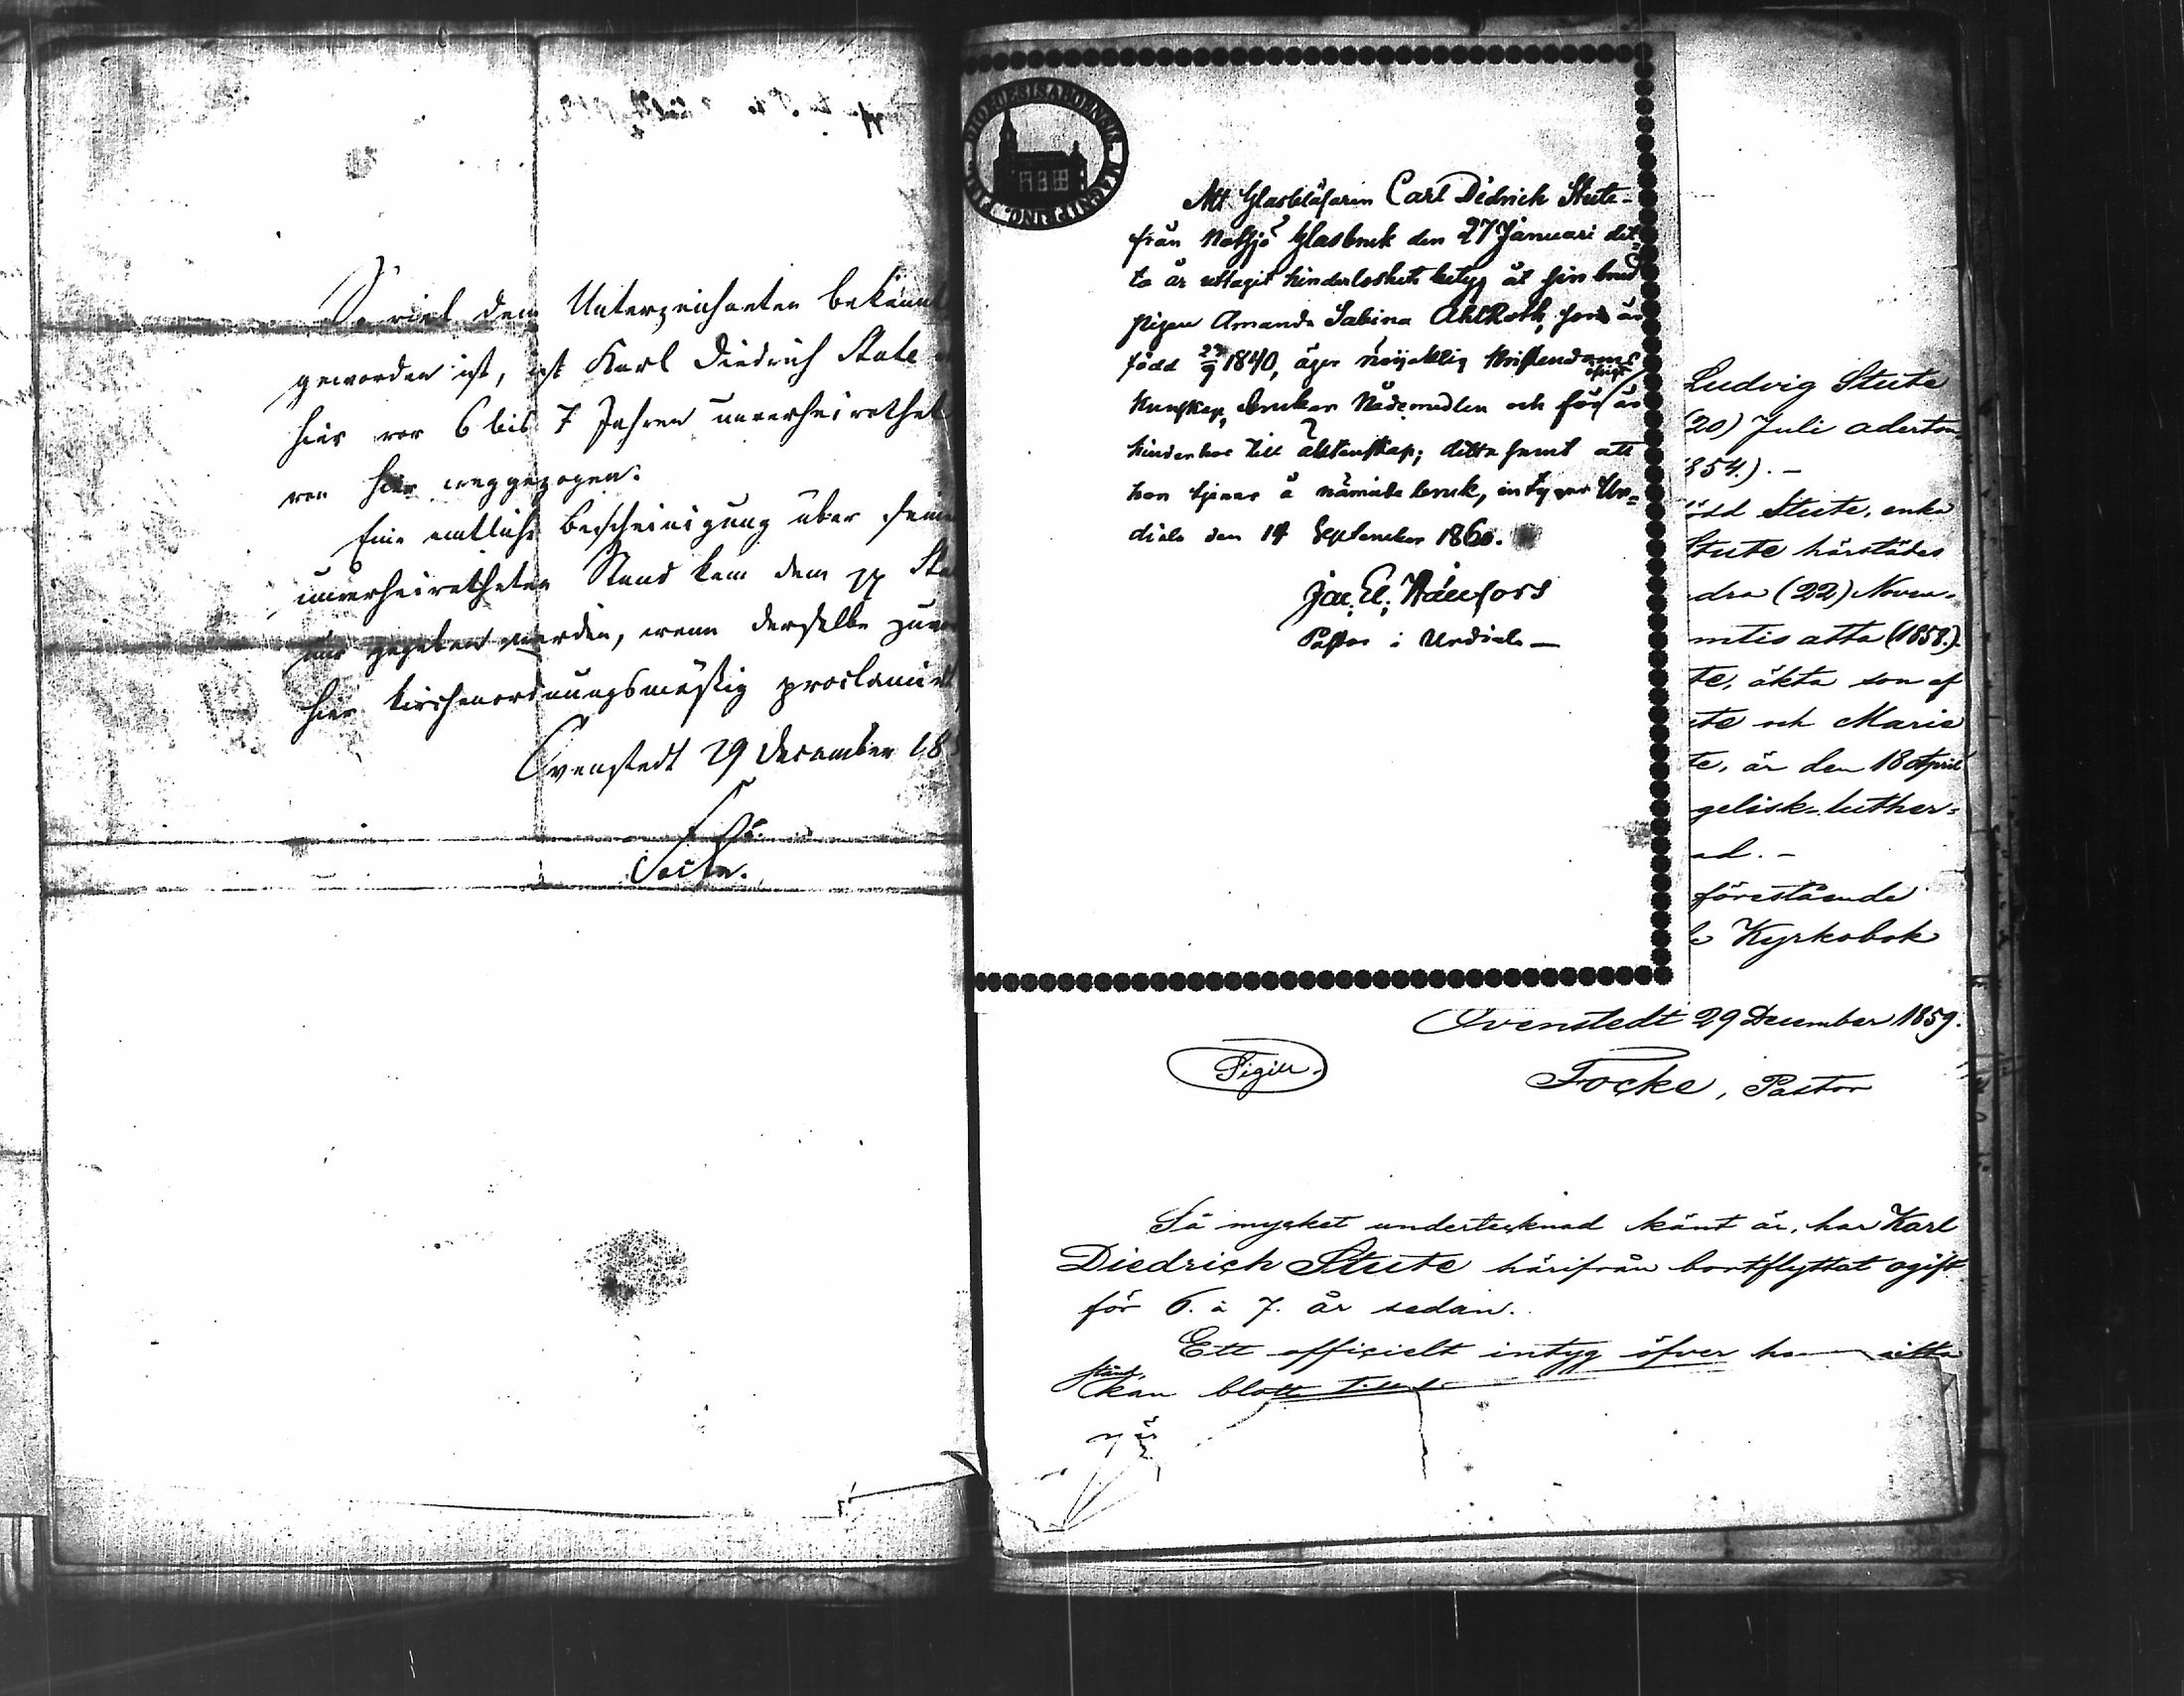 So viel dem Unterzeichneten bekannt
geworden ist, ist Karl Diedrich Stute
hier vor 6 bis 7 Jahren unverheirathet
von hier weggezogen.
Eine amtliche Bescheinigung über seinen
unverheiratheten Stand kann dem
nur gegeben werden, wenn derselbe zuvor
hier kirchenordnungsmäßig proclamirt
Ovenstedt 29 December 185
Focke.
DIOECESIS ABOENSIS
Att Glasblåsaren Carl Didrich Stute
från Notsjö Glasbruk den 27 Januari det
ta år uttagit hinderlöshets betyg åt sin brud
pigan Amanda Sabina Ahlroth, som är
född 1840, äger nöjaktig Kristendoms
Kunskap, brukar Nådemedlen och för öfrigt är
hinderlös till äktenskap; detta samt att
hon tjenar å nämnde bruk, intygar Ur=
diala den 14 September 1860.
Pastor i Urdiala
Ludvig Stute
(20) Juli aderton
1854.).-
född Stute, enka
Stute härstädes
dra (22) Novem-
mtio åtta (1858.).
te, äkta son af
te och Marie
te, är den 18 April
gelisk-luther=
ad.-
förestående
Kyrkobok
Ovenstedt 29 December 1859.
Sigill.
Focke, Pastor
Så mycket undertecknad känt är, har Karl
Diedrich Stute härifrån bortflyttat ogift
för 6. à 7. år sedan.
Ett officielt intyg öfver
stånd,
kan blott